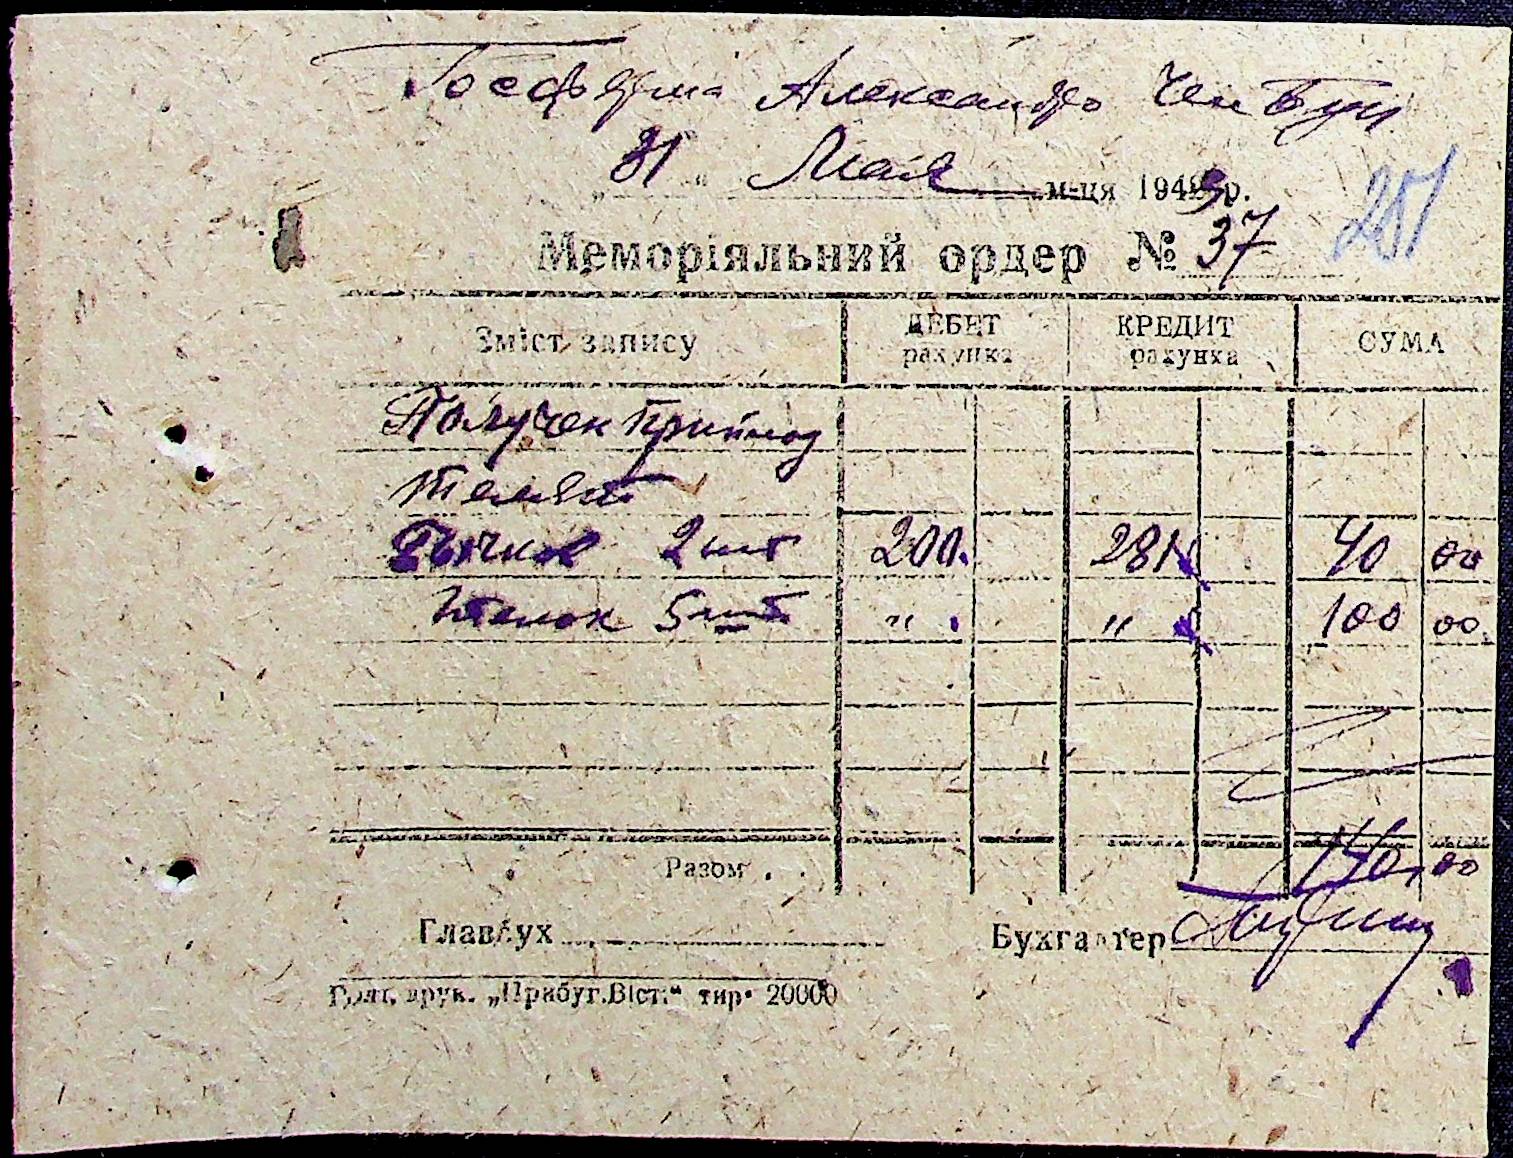 Госферма Александро
„ 31 “ Мая м-ця 1943 р.
201
Меморіяльний ордер № 37
Зміст запису ДЕБЕТ рахунка КРЕДИТ рахунка СУМА
Получен приплод
телят
Бычков 2 шт 200. 281 40 00
телок 5 шт " " 100 00
Разом . . 140,00
Главбух Бухгалтер
друк. „Прибуг.Вісті“ тир. 20000